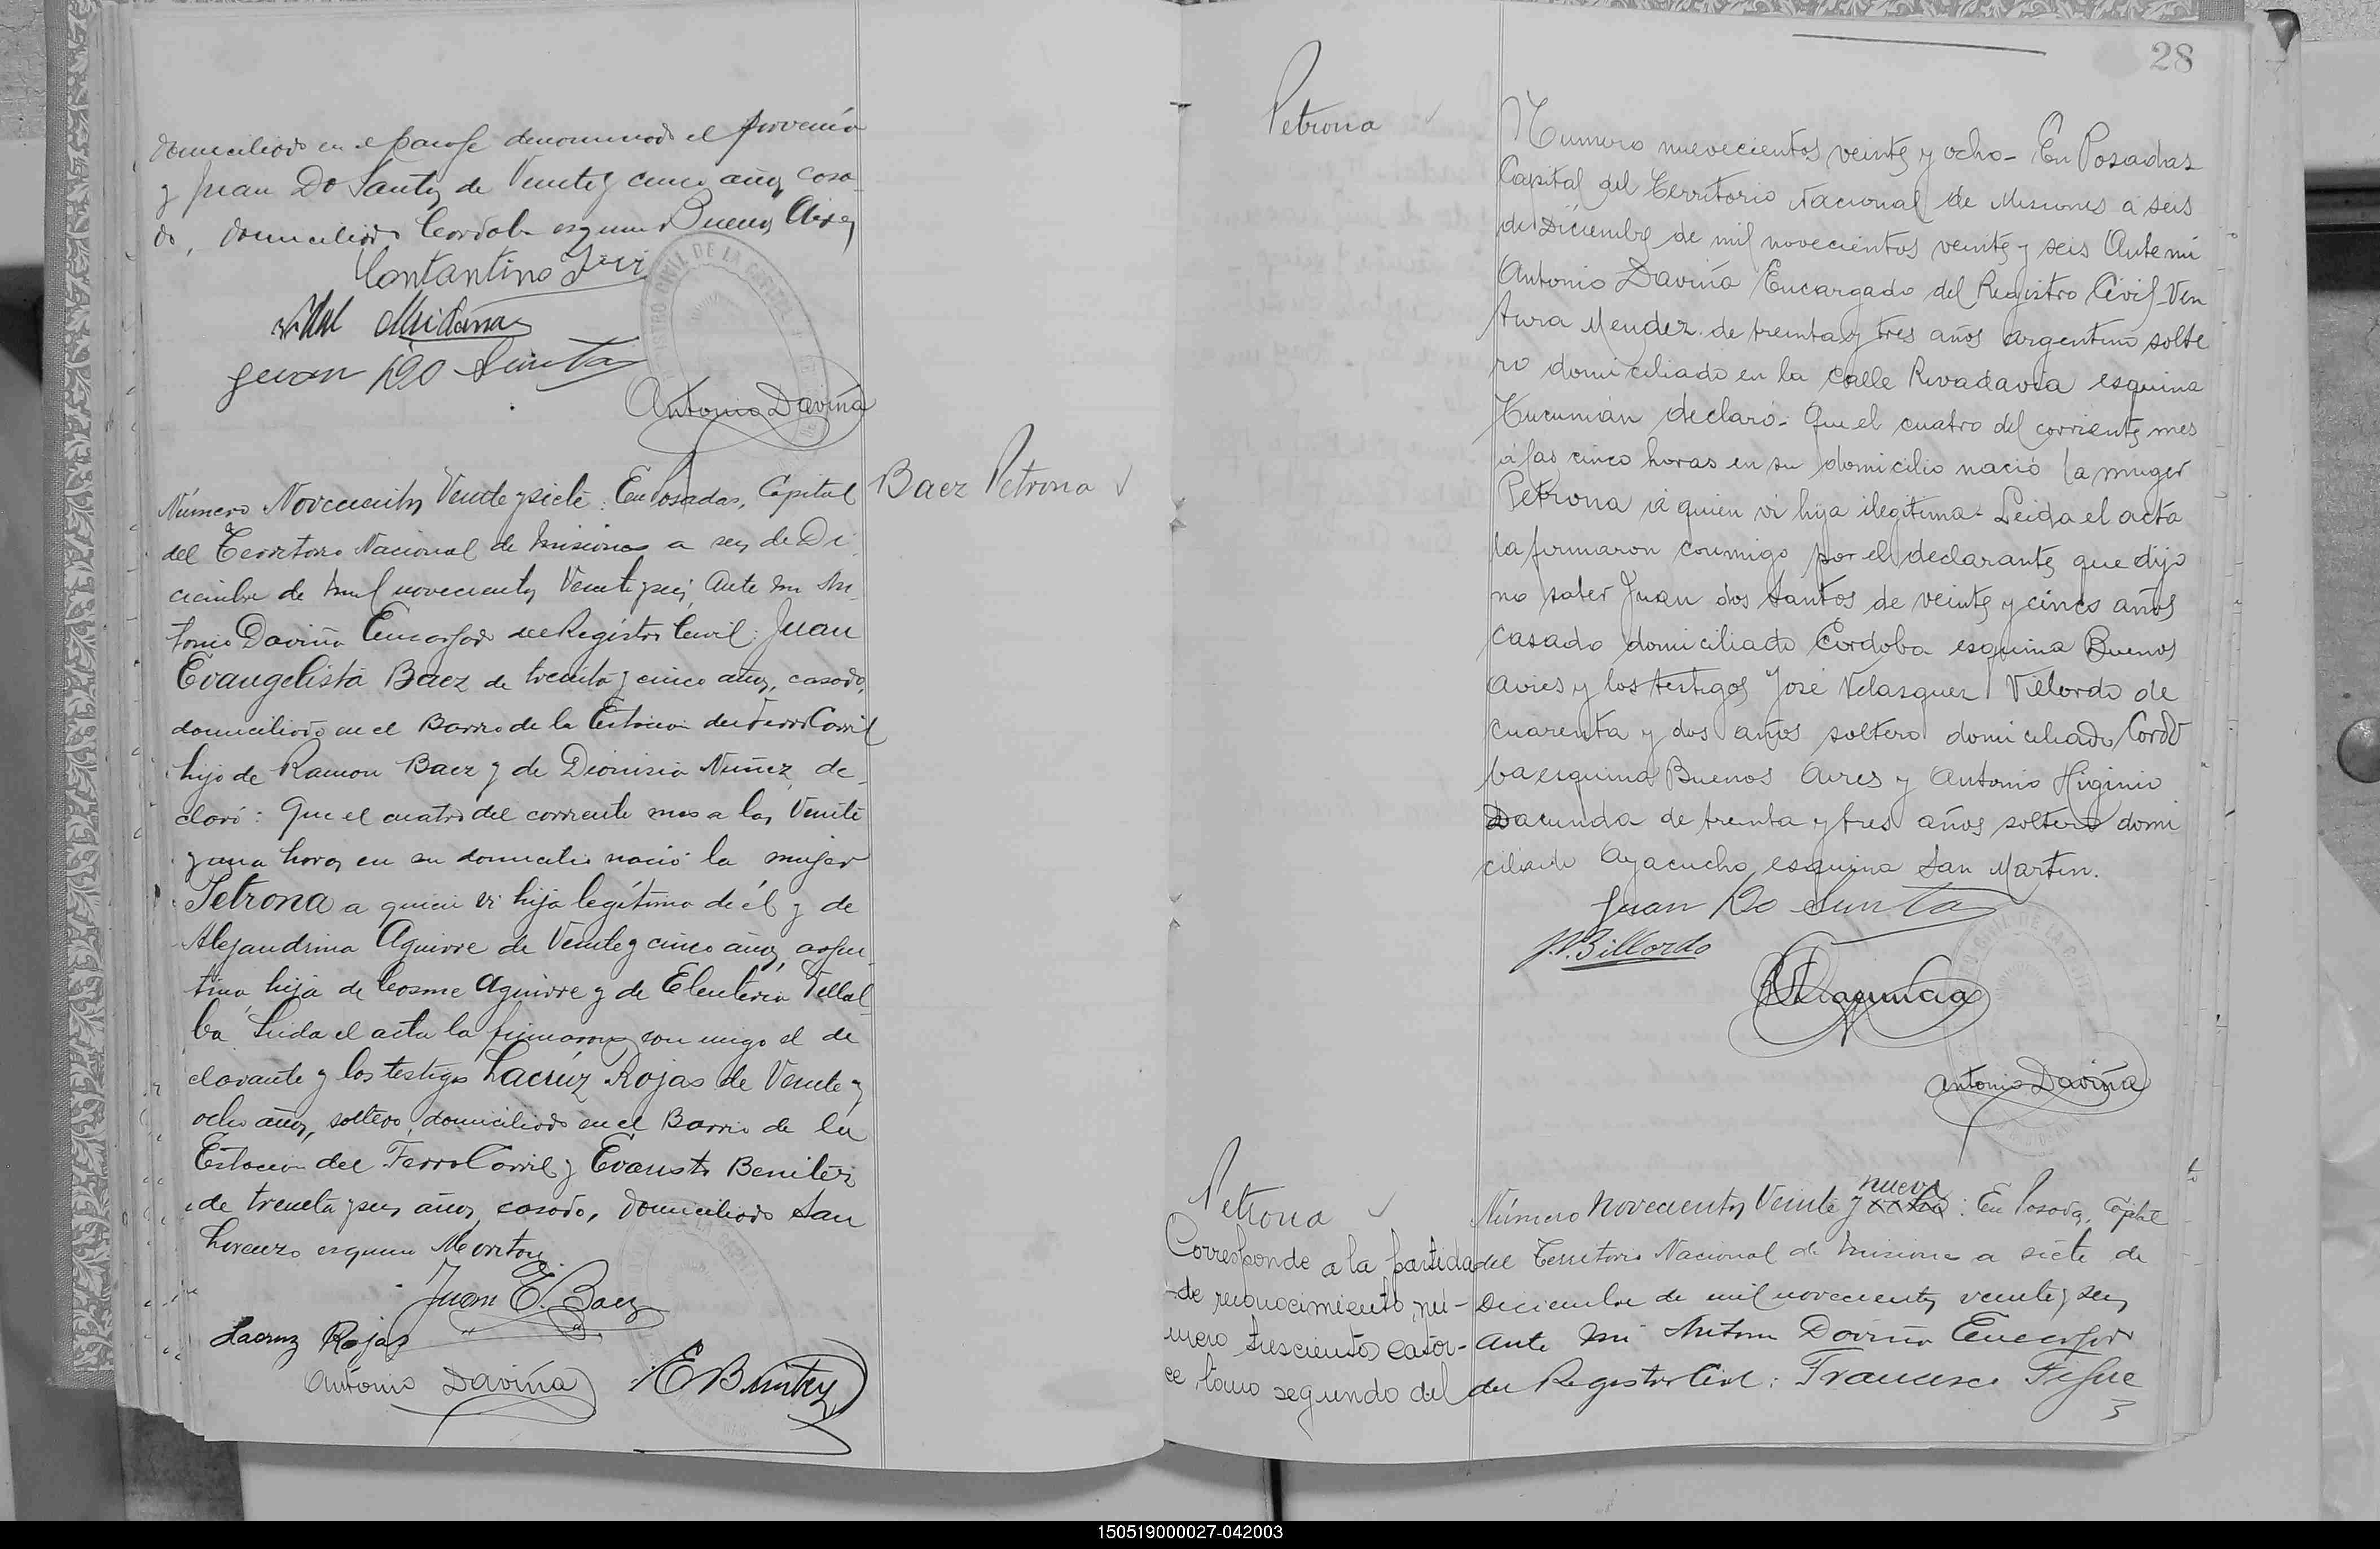 domiciliado en el paraje denominado el porvenir
y Juan Do Santos de Veinte y cinco años casa
do, domiciliado Cordoba esquina Buenos Aires
Contantino
Vidal
Juan Do Santo
Antonio Daviña
Baez Petrona
Número Novecientos Veinte y siete: En Posadas, Capital
del Territorio Nacional de Misiones a seis de Di
ciembre de mil novecientos Veinte y seis, Ante mi An-
tonio Daviña Encargado del Registro Civil: Juan
Evangelista Baez de treinta y cinco años, casado,
domiciliado en el Barrio de la Estacion del Ferro Carril
hijo de Ramon Baez y de Dionisia Nuñez, de-
claró: Que el cuatro del corriente mes a las Veinte
y una horas en su domicilio nació la mujer
Petrona a quien vi hija legítima de él y de
Alejandrina Aguirre de Veinte y cinco años, argen-
tina, hija de Cosme Aguirre y de Eleuteria Villal-
ba. Leida el acta la firmaron con migo el de
clarante y los testigos Lacrúz Rojas de Veinte y
ocho años, soltero, domiciliado en el Barrio de la
Estacion del Ferro Carril y Evaristo Benitez
de treinta y seis años, casado, domiciliado San
Lorenzo esquina
Juan E. Baez
Lacruz Rojas
Antonio Daviña
E Benitez
28
Petrona
Numero nuevecientos veinte y ocho- En Posadas
Capital del Territorio Nacional de Misiones a seis
de Diciembre de mil novecientos veinte y seis Ante mi
Antonio Daviña Encargado del Registro Civil-Ven
tura Mendez de treinta y tres años argentino solte
ro domiciliado en la calle Rivadavia esquina
Tucumán declaró- Que el cuatro del corriente mes
á las cinco horas en su domicilio nació la muger
Petrona á quien vi hija ilegítima- Leida el acta
la firmaron conmigo por el declarante que dijo
no saber Juan dos Santos de veinte y cinco años
casado domiciliado Córdoba esquina Buenos
Aires y los testigos José Velasquez Villordo de
cuarenta y dos años soltero domiciliado Cordo
ba esquina Buenos Aires y Antonio Higinio
Dacunda de treinta y tres años soltero domi
ciliado Ayacucho esquina San Martin.
Juan Do Santo
J.V. Billordo
Antonio Daviña
Petrona
Corresponde a la partida
de reconocimiento nú-
mero trescientos cator-
ce tomo segundo del
Número Novecientos Veinte y ocho nueve: En Posadas, Capital
del Territorio Nacional de Misiones a siete de
Diciembre de mil novecientos veinte y seis,
Ante mi Antonio Daviña Encargado
del Registro Civil: Francisco Figue
150519000027-042003